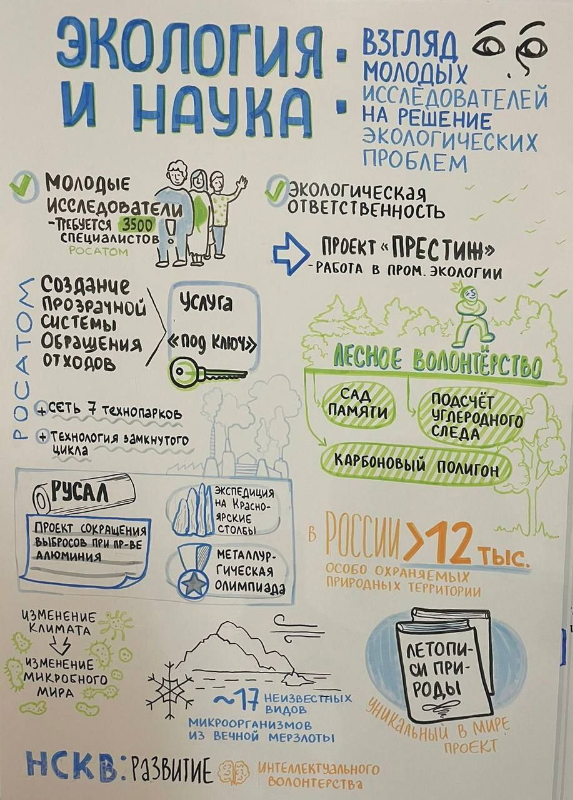 ЭКОЛОГИЯ
И НАУКА:
ВЗГЛЯД
МОЛОДЫХ
ИССЛЕДОВАТЕЛЕЙ
НА РЕШЕНИЕ
ЭКОЛОГИЧЕСКИХ
ПРОБЛЕМ
МОЛОДЫЕ
ИССЛЕДОВАТЕЛИ
-ТРЕБУЕТСЯ 3500
СПЕЦИАЛИСТОВ
РОСАТОМ
ЭКОЛОГИЧЕСКАЯ
ОТВЕТСТВЕННОСТЬ
ПРОЕКТ «ПРЕСТИЖ»
-РАБОТА В ПРОМ. ЭКОЛОГИИ
РОСАТОМ
СОЗДАНИЕ
ПРОЗРАЧНОЙ
СИСТЕМЫ
ОБРАЩЕНИЯ
ОТХОДОВ
УСЛУГА
«ПОД КЛЮЧ»
+СЕТЬ 7 ТЕХНОПАРКОВ
+ТЕХНОЛОГИЯ ЗАМКНУТОГО
ЦИКЛА
ЛЕСНОЕ ВОЛОНТЁРСТВО
САД
ПАМЯТИ
ПОДСЧЁТ
УГЛЕРОДНОГО
СЛЕДА
КАРБОНОВЫЙ ПОЛИГОН
РУСАЛ
ПРОЕКТ СОКРАЩЕНИЯ
ВЫБРОСОВ ПРИ ПР-ВЕ
АЛЮМИНИЯ
ЭКСПЕДИЦИЯ
НА КРАСНО-
ЯРСКИЕ
СТОЛБЫ
МЕТАЛЛУР-
ГИЧЕСКАЯ
ОЛИМПИАДА
В РОССИИ >12 ТЫС.
ОСОБО ОХРАНЯЕМЫХ
ПРИРОДНЫХ ТЕРРИТОРИИ
ИЗМЕНЕНИЕ
КЛИМАТА
ИЗМЕНЕНИЕ
МИКРОБНОГО
МИРА
~17 НЕИЗВЕСТНЫХ
ВИДОВ
МИКРООРГАНИЗМОВ
ИЗ ВЕЧНОЙ МЕРЗЛОТЫ
ЛЕТОПИ-
СИ ПРИ-
РОДЫ
УНИКАЛЬНЫЙ В МИРЕ
ПРОЕКТ
НСКВ: РАЗВИТИЕ ИНТЕЛЛЕКТУАЛЬНОГО
ВОЛОНТЕРСТВА